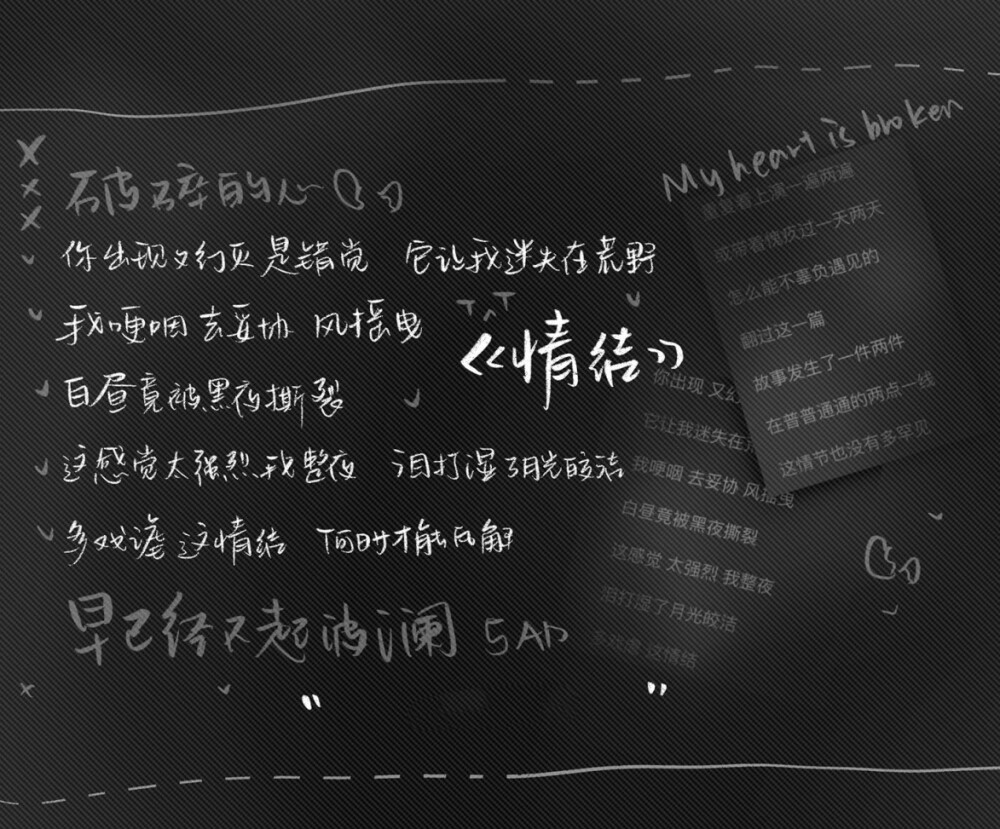 My heart is broken
破碎的心
你出现又幻灭是错觉 它让我迷失在荒野
我哽咽去妥协 风摇曳
《情结》
白昼竟被黑夜撕裂
这感觉太强烈 我整夜 泪打湿了月光皎洁
多戏谑 这情结 何时才能瓦解
早已经不起波澜 SAD
重复着上演一遍两遍
或带着愧疚过一天两天
怎么能不辜负遇见的
翻过这一篇
故事发生了一件两件
在普普通通的两点一线
这情节也没有多罕见
你出现 又幻
它让我迷失在
我哽咽 去妥协 风摇曳
白昼竟被黑夜撕裂
这感觉 太强烈 我整夜
泪打湿了月光皎洁
多戏谑 这情结